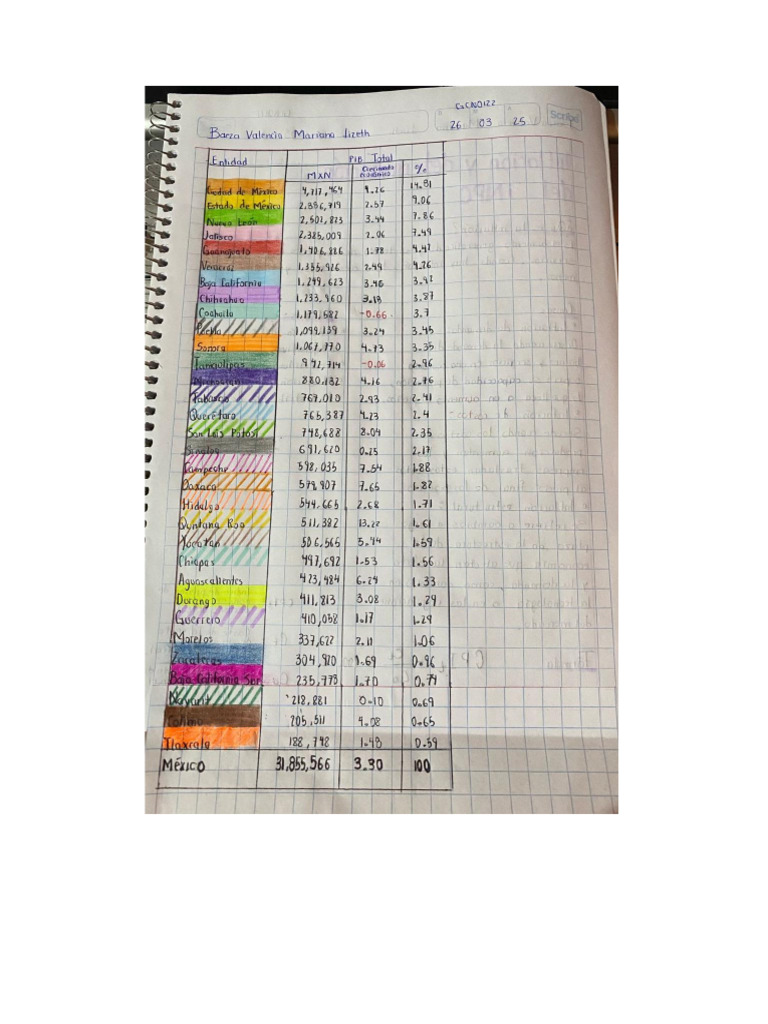 CoCN0122
Barza Valencia Mariana Lizeth 26 03 25 Scribe
Entidad PIB Total
MXN Crecimiento económico %
Ciudad de México 4,717,464 4.26 14.81
Estado de México 2.886,719 2.57 9.06
Nuevo León 2,501,823 3.44 7.86
Jalisco 2,385,009 2.06 7.49
Guanajuato 1,406,886 1.78 4.42
Veracruz 1.355,926 2.49 4.26
Baja California 1.249,623 3.46 3.92
Chihuahua 1.233,960 3.13 3.87
Coahuila 1,179,582 -0.66 3.7
Puebla 1,099,139 3.24 3.45
Sonora 1.067,770 4.83 3.35
Tamaulipas 942,714 -0.06 2.96
Michoacán 880,132 4.16 2.76
Tabasco 767,010 2.93 2.41
Querétaro 765,387 4.23 2.4
San Luis Potosí 748,688 8.04 2.35
Sinaloa 691,620 0.25 2.17
Campeche 598,035 7.54 1.88
Oaxaca 579,907 7.65 1.82
Hidalgo 544,665 2.68 1.71
Quintana Roo 511,382 13.22 1.61
Yucatán 506,565 5.74 1.59
Chiapas 497,692 1.53 1.56
Aguascalientes 423,484 6.29 1.33
Durango 411,813 3.08 1.29
Guerrero 410,038 1.17 1.29
Morelos 337,622 2.11 1.06
Zacatecas 304,920 1.69 0.96
Baja California Sur 235,773 1.70 0.74
Nayarit 218,881 0.10 0.69
Colima 205,511 4.08 0.65
Tlaxcala 188,742 1.48 0.59
México 31,855,566 3.30 100